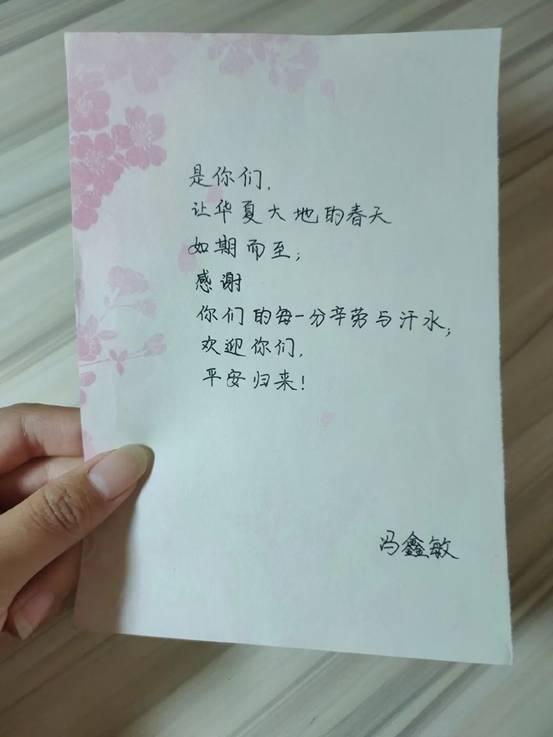 是你们，
让华夏大地的春天
如期而至；
感谢
你们的每一分辛劳与汗水；
欢迎你们，
平安归来！
冯鑫敏